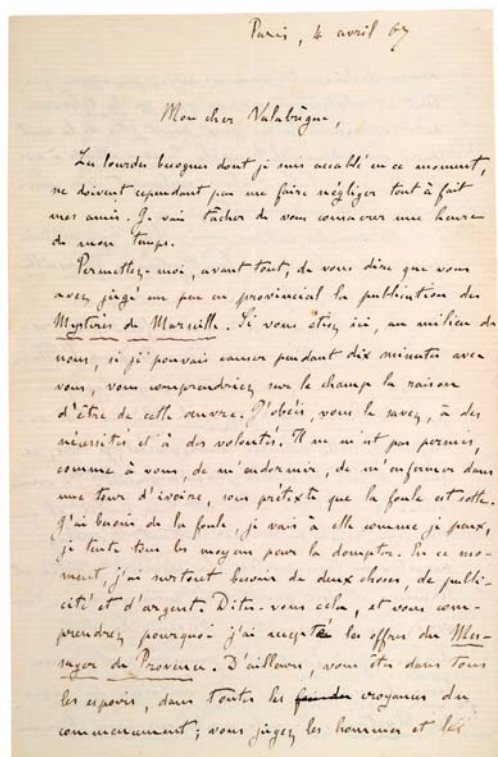 Paris, 4 avril 67
Mon cher Valabrègue,
Les lourdes besognes dont je suis accablé en ce moment,
ne doivent cependant pas me faire négliger tout à fait
mes amis. Je vais tâcher de vous consacrer une heure
de mon temps.
Permettez-moi, avant tout, de vous dire que vous
avez jugé un peu en provincial la publication des
Mystères de Marseille. Si vous étiez ici, au milieu de
nous, si je pouvais causer pendant dix minutes avec
vous, vous comprendriez sur le champ la raison
d'être de cette œuvre. J'obéis, vous le savez, à des
nécessités et à des volontés. Il ne m'est pas permis,
comme à vous, de m'endormir, de m'enfermer dans
une tour d'ivoire, sous prétexte que la foule est sotte.
J'ai besoin de la foule, je vais à elle comme je peux,
je tente tous les moyens pour la dompter. En ce mo-
ment, j'ai surtout besoin de deux choses, de publi-
cité et d'argent. Dites-vous cela, et vous com-
prendrez pourquoi j'ai accepté les offres du Mes-
sager de Provence. D'ailleurs, vous êtes dans tous
les espoirs, dans toutes les croyances du
commencement ; vous jugez les hommes et les